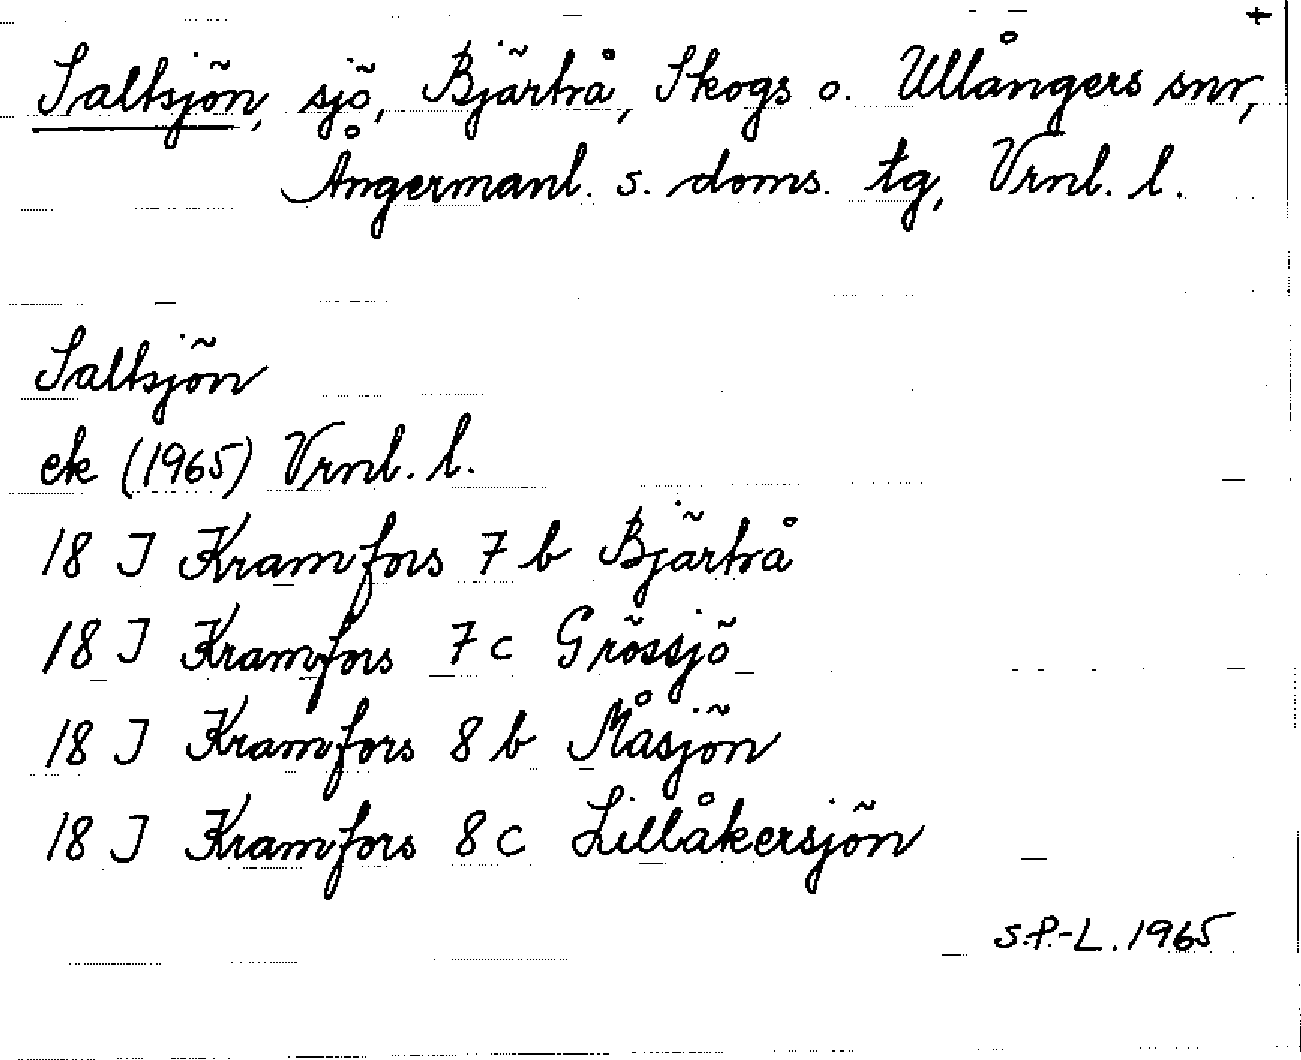 +
Saltsjön, sjö, Bjärtrå, Skogs o. Ullångers snr,
Ångermanl. s. doms. tg, Vrnl. l.
Saltsjön
ek (1965) Vrnl. l.
18 J Kramfors 7 b Bjärtrå
18 J Kramfors 7 c Grössjö
18 J Kramfors 8 b Måsjön
18 J Kramfors 8 c Lillåkersjön
S.P.-L. 1965